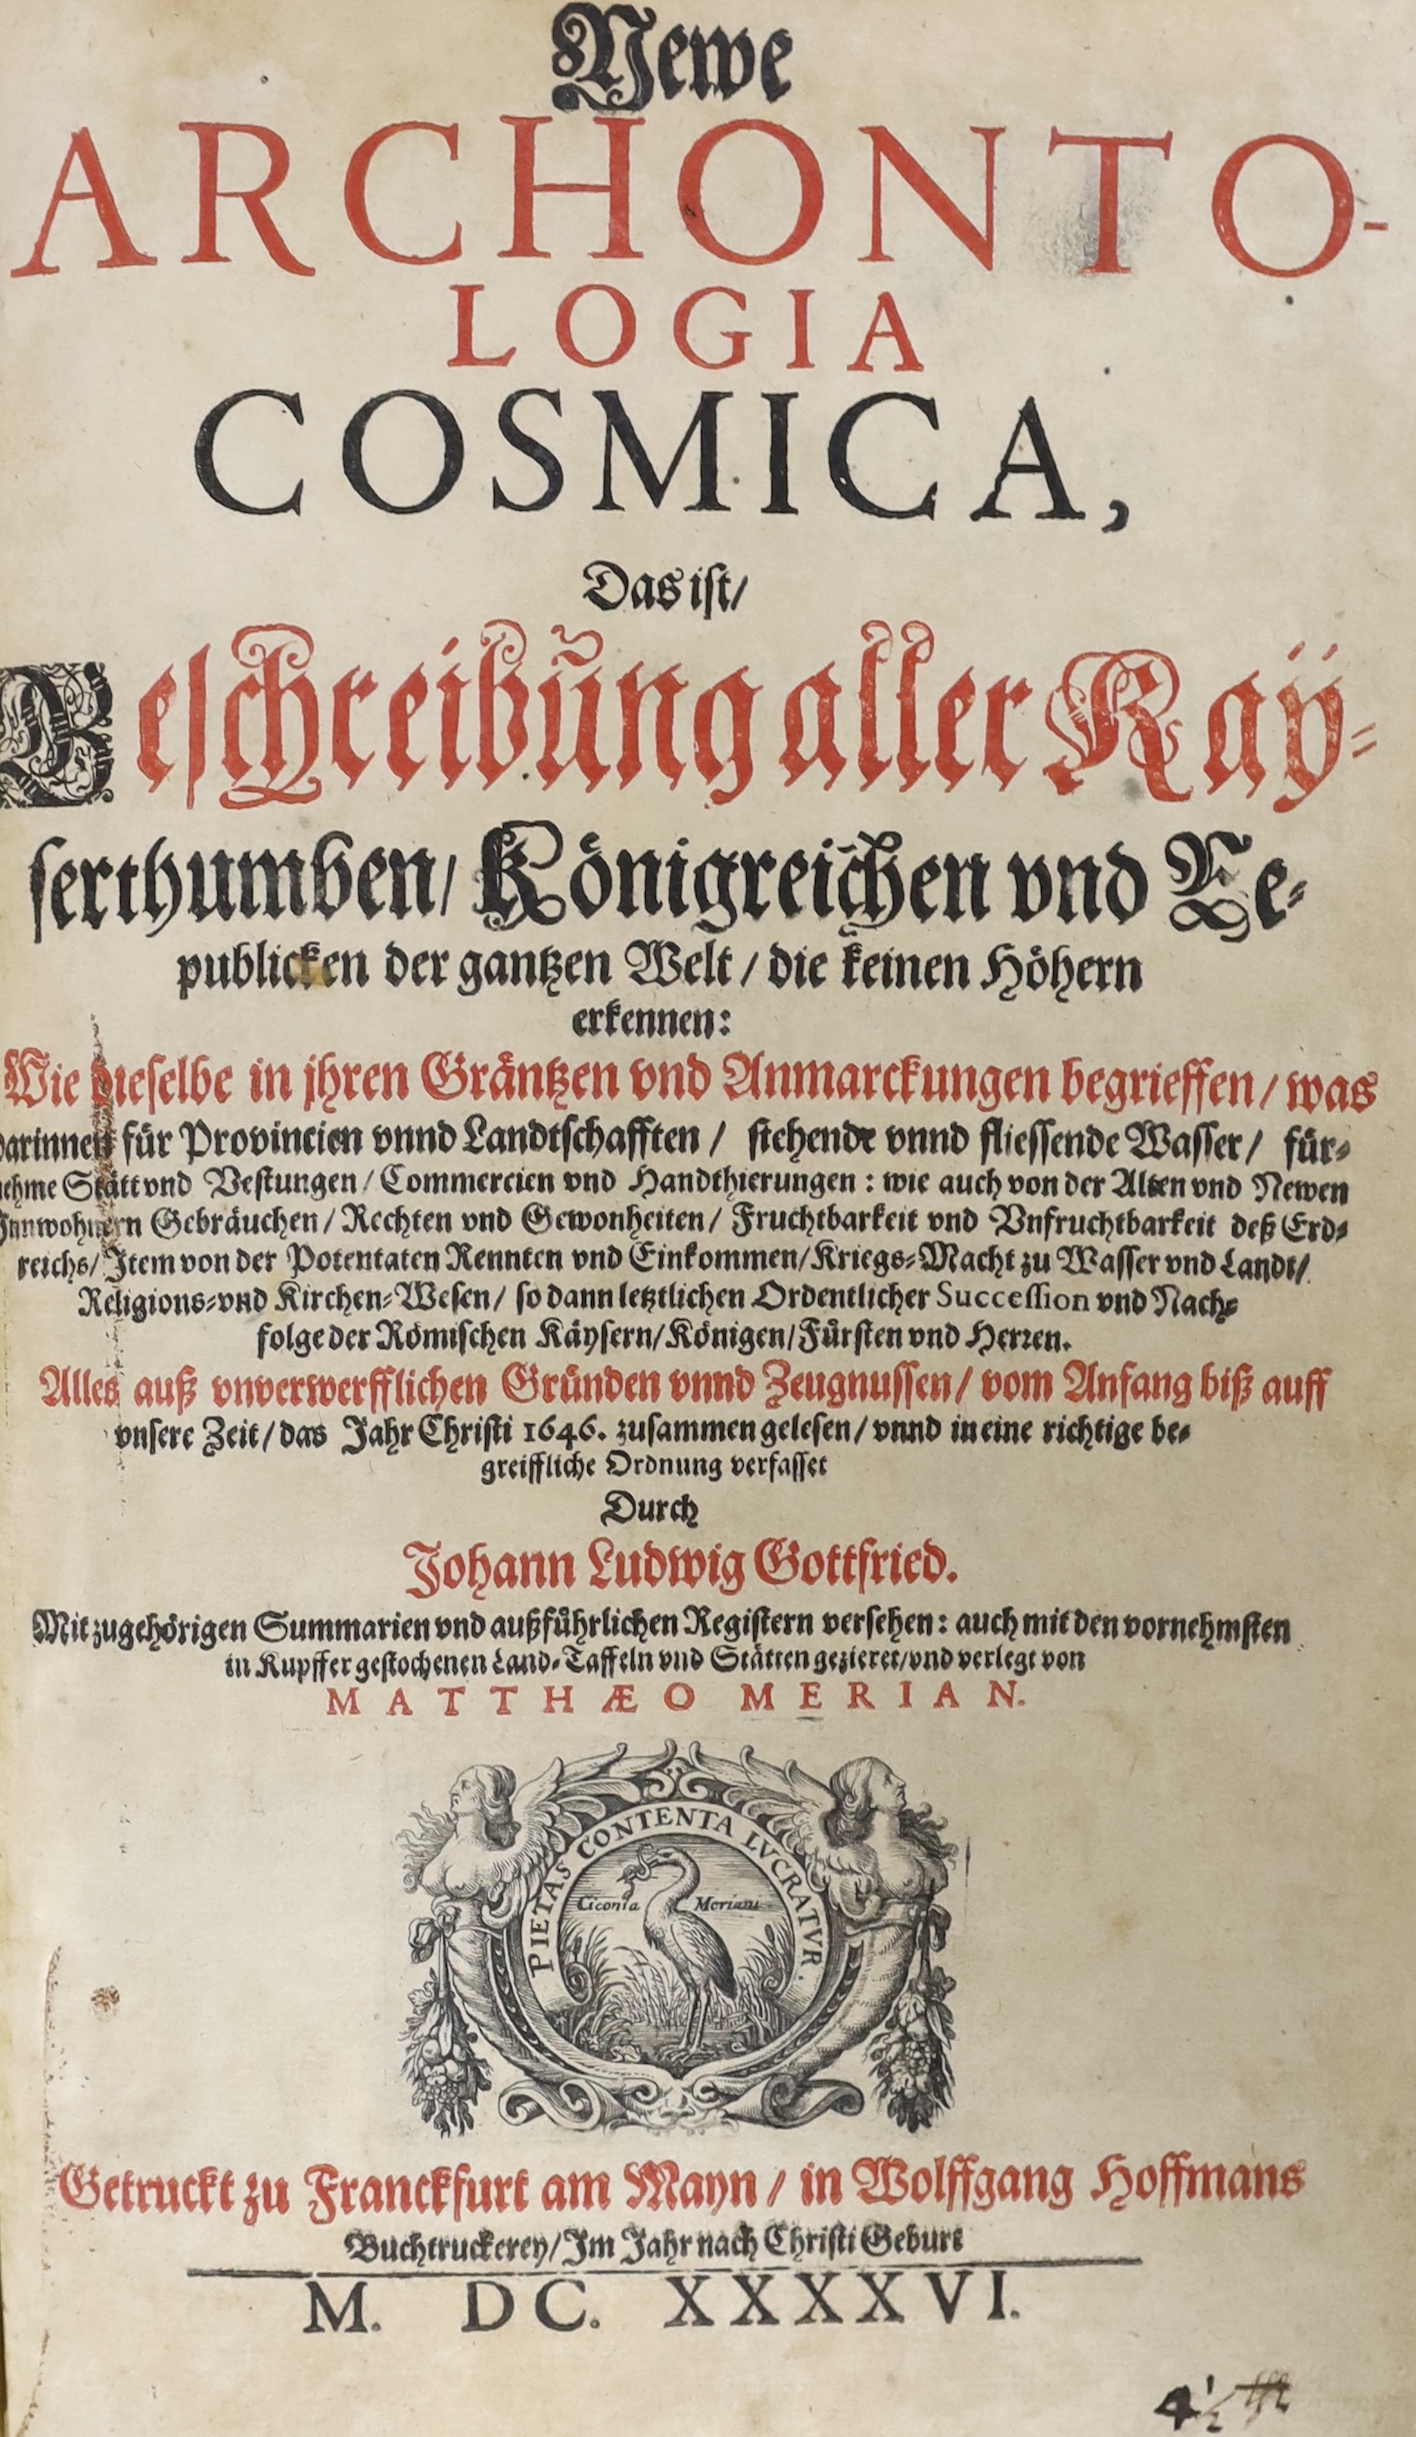 Newe
ARCHONTO-
LOGIA
COSMICA,
Das ist/
Beschreibung aller Kaÿ-
serthumben/ Königreichen vnd Re-
publicken der gantzen Welt/ die keinen Höhern
erkennen:
Wie dieselbe in jhren Gräntzen vnd Anmarckungen begrieffen/ was
darinnen für Provincien vnnd Landtschafften/ stehende vnnd fliessende Wasser/ für-
nehme Stätt vnd Vestungen/ Commercien vnd Handthierungen: wie auch von der Alten vnd Newen
Innwohnern Gebräuchen/ Rechten vnd Gewonheiten/ Fruchtbarkeit vnd Vnfruchtbarkeit deß Erd-
reichs/ Item von der Potentaten Rennten vnd Einkommen/ Kriegs-Macht zu Wasser vnd Landt/
Religions-vnd Kirchen-Wesen/ so dann letztlichen Ordentlicher Succession vnd Nach-
folge der Römischen Käysern/ Königen/ Fürsten vnd Herren.
Alles auß vnverwerfflichen Gründen vnnd Zeugnussen/ vom Anfang biß auff
vnsere Zeit/ das Jahr Christi 1646. zusammen gelesen/ vnnd in eine richtige be-
greiffliche Ordnung verfasset
Durch
Johann Ludwig Gottfried.
Mit zugehörigen Summarien vnd außführlichen Registern versehen: auch mit den vornehmsten
in Kupffer gestochenen Land-Taffeln vnd Stätten gezieret/ vnd verlegt von
MATTHÆO MERIAN.
PIETAS CONTENTA LVCRATVR.
Ciconia Meriani
Getruckt zu Franckfurt am Mayn/ in Wolffgang Hoffmans
Buchtruckerey/ Im Jahr nach Christi Geburt
M. DC. XXXXVI.
4 1/2